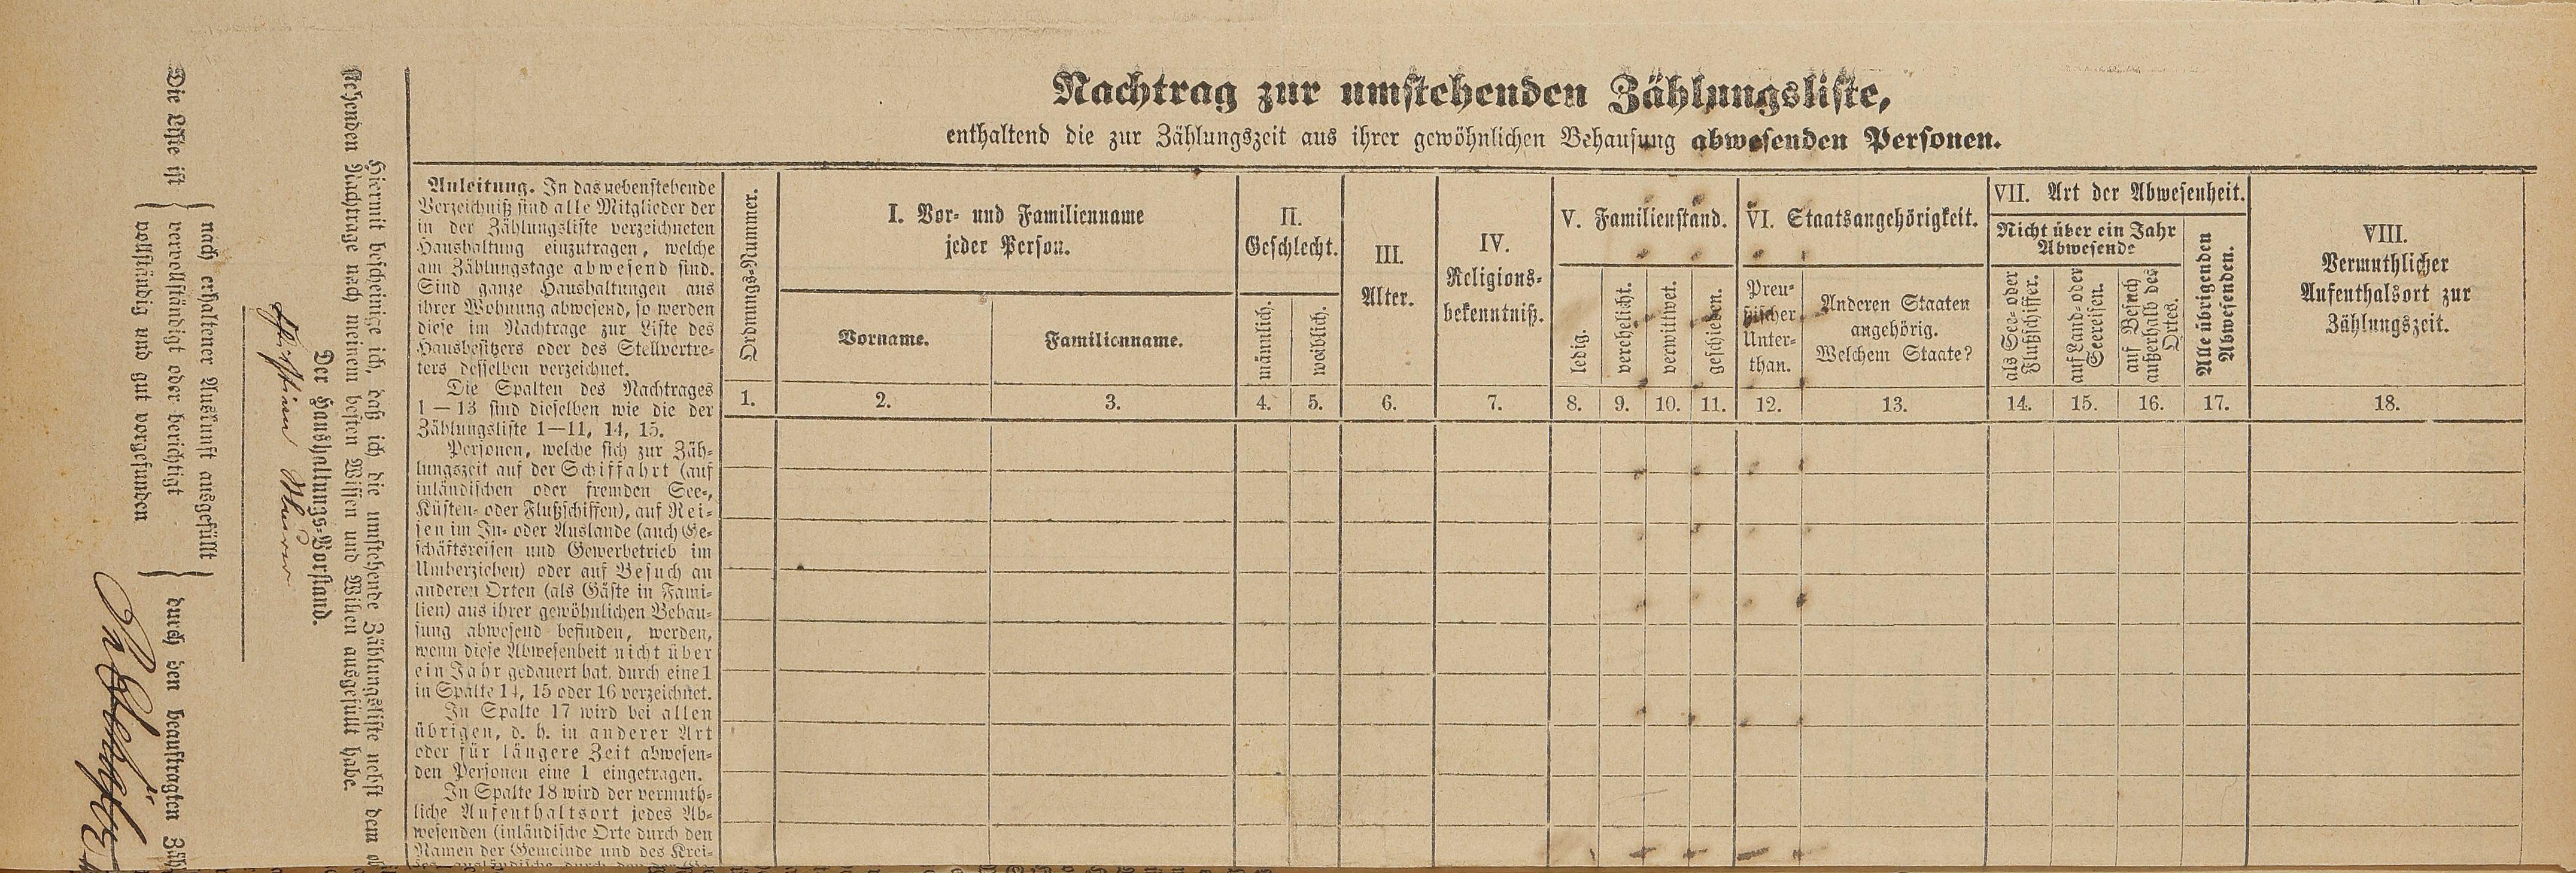 Nachtrag zur umstehenden Zählungsliste,
enthaltend die zur Zählungszeit aus ihrer gewöhnlichen Behausung abwesenden Personen.
Anleitung. In das nebenstehende
Verzeichniß sind alle Mitglieder der
in der Zählungsliste verzeichneten
Haushaltung einzutragen, welche
am Zählungstage abwesend sind.
Sind ganze Haushaltungen aus
ihrer Wohnung abwesend, so werden
diese im Nachtrage zur Liste des
Hausbesitzers oder des Stellvertre-
ters desselben verzeichnet.
Die Spalten des Nachtrages
1—13 sind dieselben wie die der
Zählungsliste 1—11, 14, 15.
Personen, welche sich zur Zäh-
lungszeit auf der Schiffahrt (auf
inländischen oder fremden See-,
Küsten- oder Flußschiffen), auf Rei-
sen im In- oder Auslande (auch Ge-
schäftsreisen und Gewerbetrieb im
Umherziehen) oder auf Besuch an
anderen Orten (als Gäste in Fami-
lien) aus ihrer gewöhnlichen Behau-
sung abwesend befinden, werden,
wenn diese Abwesenheit nicht über
ein Jahr gedauert hat, durch eine 1
in Spalte 14, 15 oder 16 verzeichnet.
In Spalte 17 wird bei allen
übrigen, d. h. in anderer Art
oder für längere Zeit abwesen-
den Personen eine 1 eingetragen.
In Spalte 18 wird der vermuth-
liche Aufenthaltsort jedes Ab-
wesenden (inländische Orte durch den
Namen der Gemeinde und des Krei-
Ordnungs-Nummer.
1.
I. Vor- und Familienname
jeder Person.
Vorname.
Familienname.
2.
3.
II.
Geschlecht.
männlich.
weiblich.
4.
5.
III.
Alter.
6.
IV.
Religions-
bekenntniß.
7.
V. Familienstand.
ledig.
verehelicht.
verwittwet.
geschieden.
8.
9.
10.
11.
VI. Staatsangehörigkeit.
Preu-
ßischer
Unter-
than.
Anderen Staaten
angehörig.
Welchem Staate?
12.
13.
VII. Art der Abwesenheit.
Nicht über ein Jahr
Abwesende
als See- oder
Flußschiffer.
auf Land- oder
Seereisen.
auf Besuch
außerhalb des
Ortes.
Alle übrigenden
Abwesenden.
14.
15.
16.
17.
VIII.
Vermuthlicher
Aufenthalsort zur
Zählungszeit.
18.
Hiermit bescheinige ich, daß ich die umstehende Zählungsliste nebst dem
stehenden Nachtrage nach meinem besten Wissen und Willen ausgefüllt habe.
Der Haushaltungs-Vorstand.
Die Liste ist
nach erhaltener Auskunft ausgefüllt
vervollständigt oder berichtigt
vollständig und gut vorgefunden
durch den beauftragten